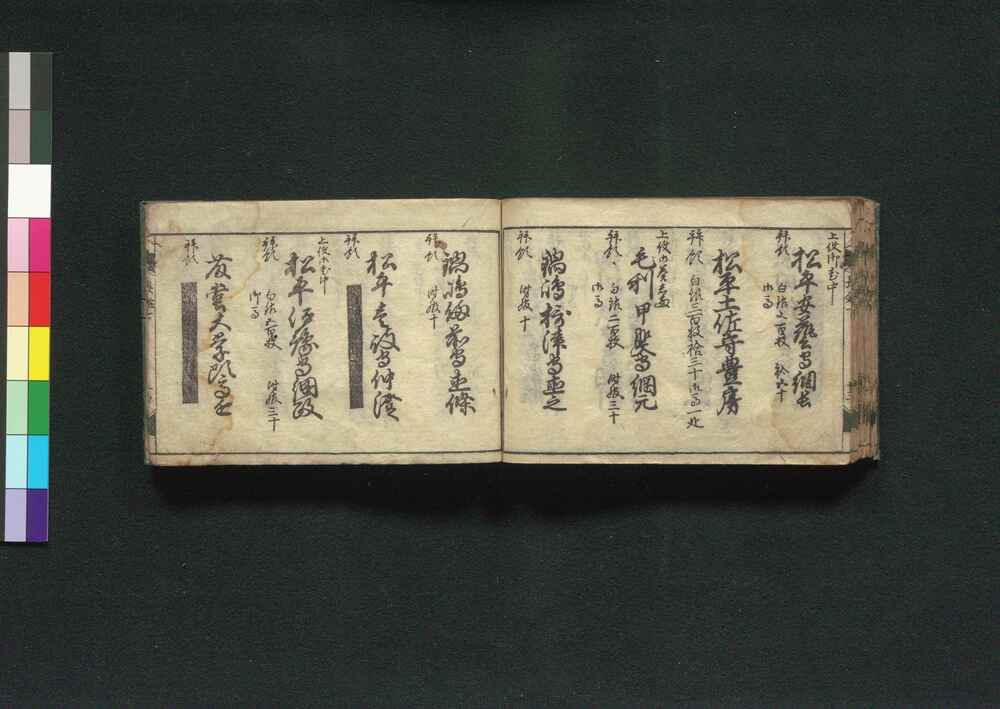 上使御老中
松平安藝守綱長
拝領 白銀五百枚 紗六十
御馬
松平土佐守豊房
拝領 白銀三百枚 袷三十 御馬一疋
上使
毛利甲斐守綱元
拝領 白銀二百枚 時服三十
御馬
鍋嶋摂津守直之
拝領 時服十
鍋嶋備前守直條
拝領 時服十
松平壱岐守仲澄
拝領
上使御老中
松平伊豫守綱政
拝領 白銀五百枚 時服三十
御馬
藤堂大学頭高
拝領